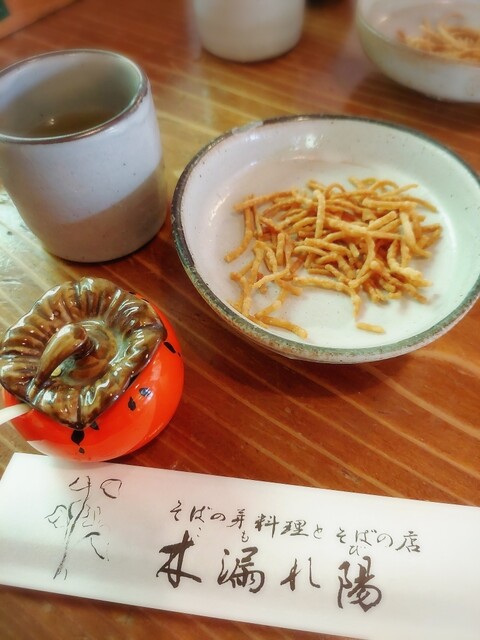 そばの芽料理とそばの店
木漏れ陽